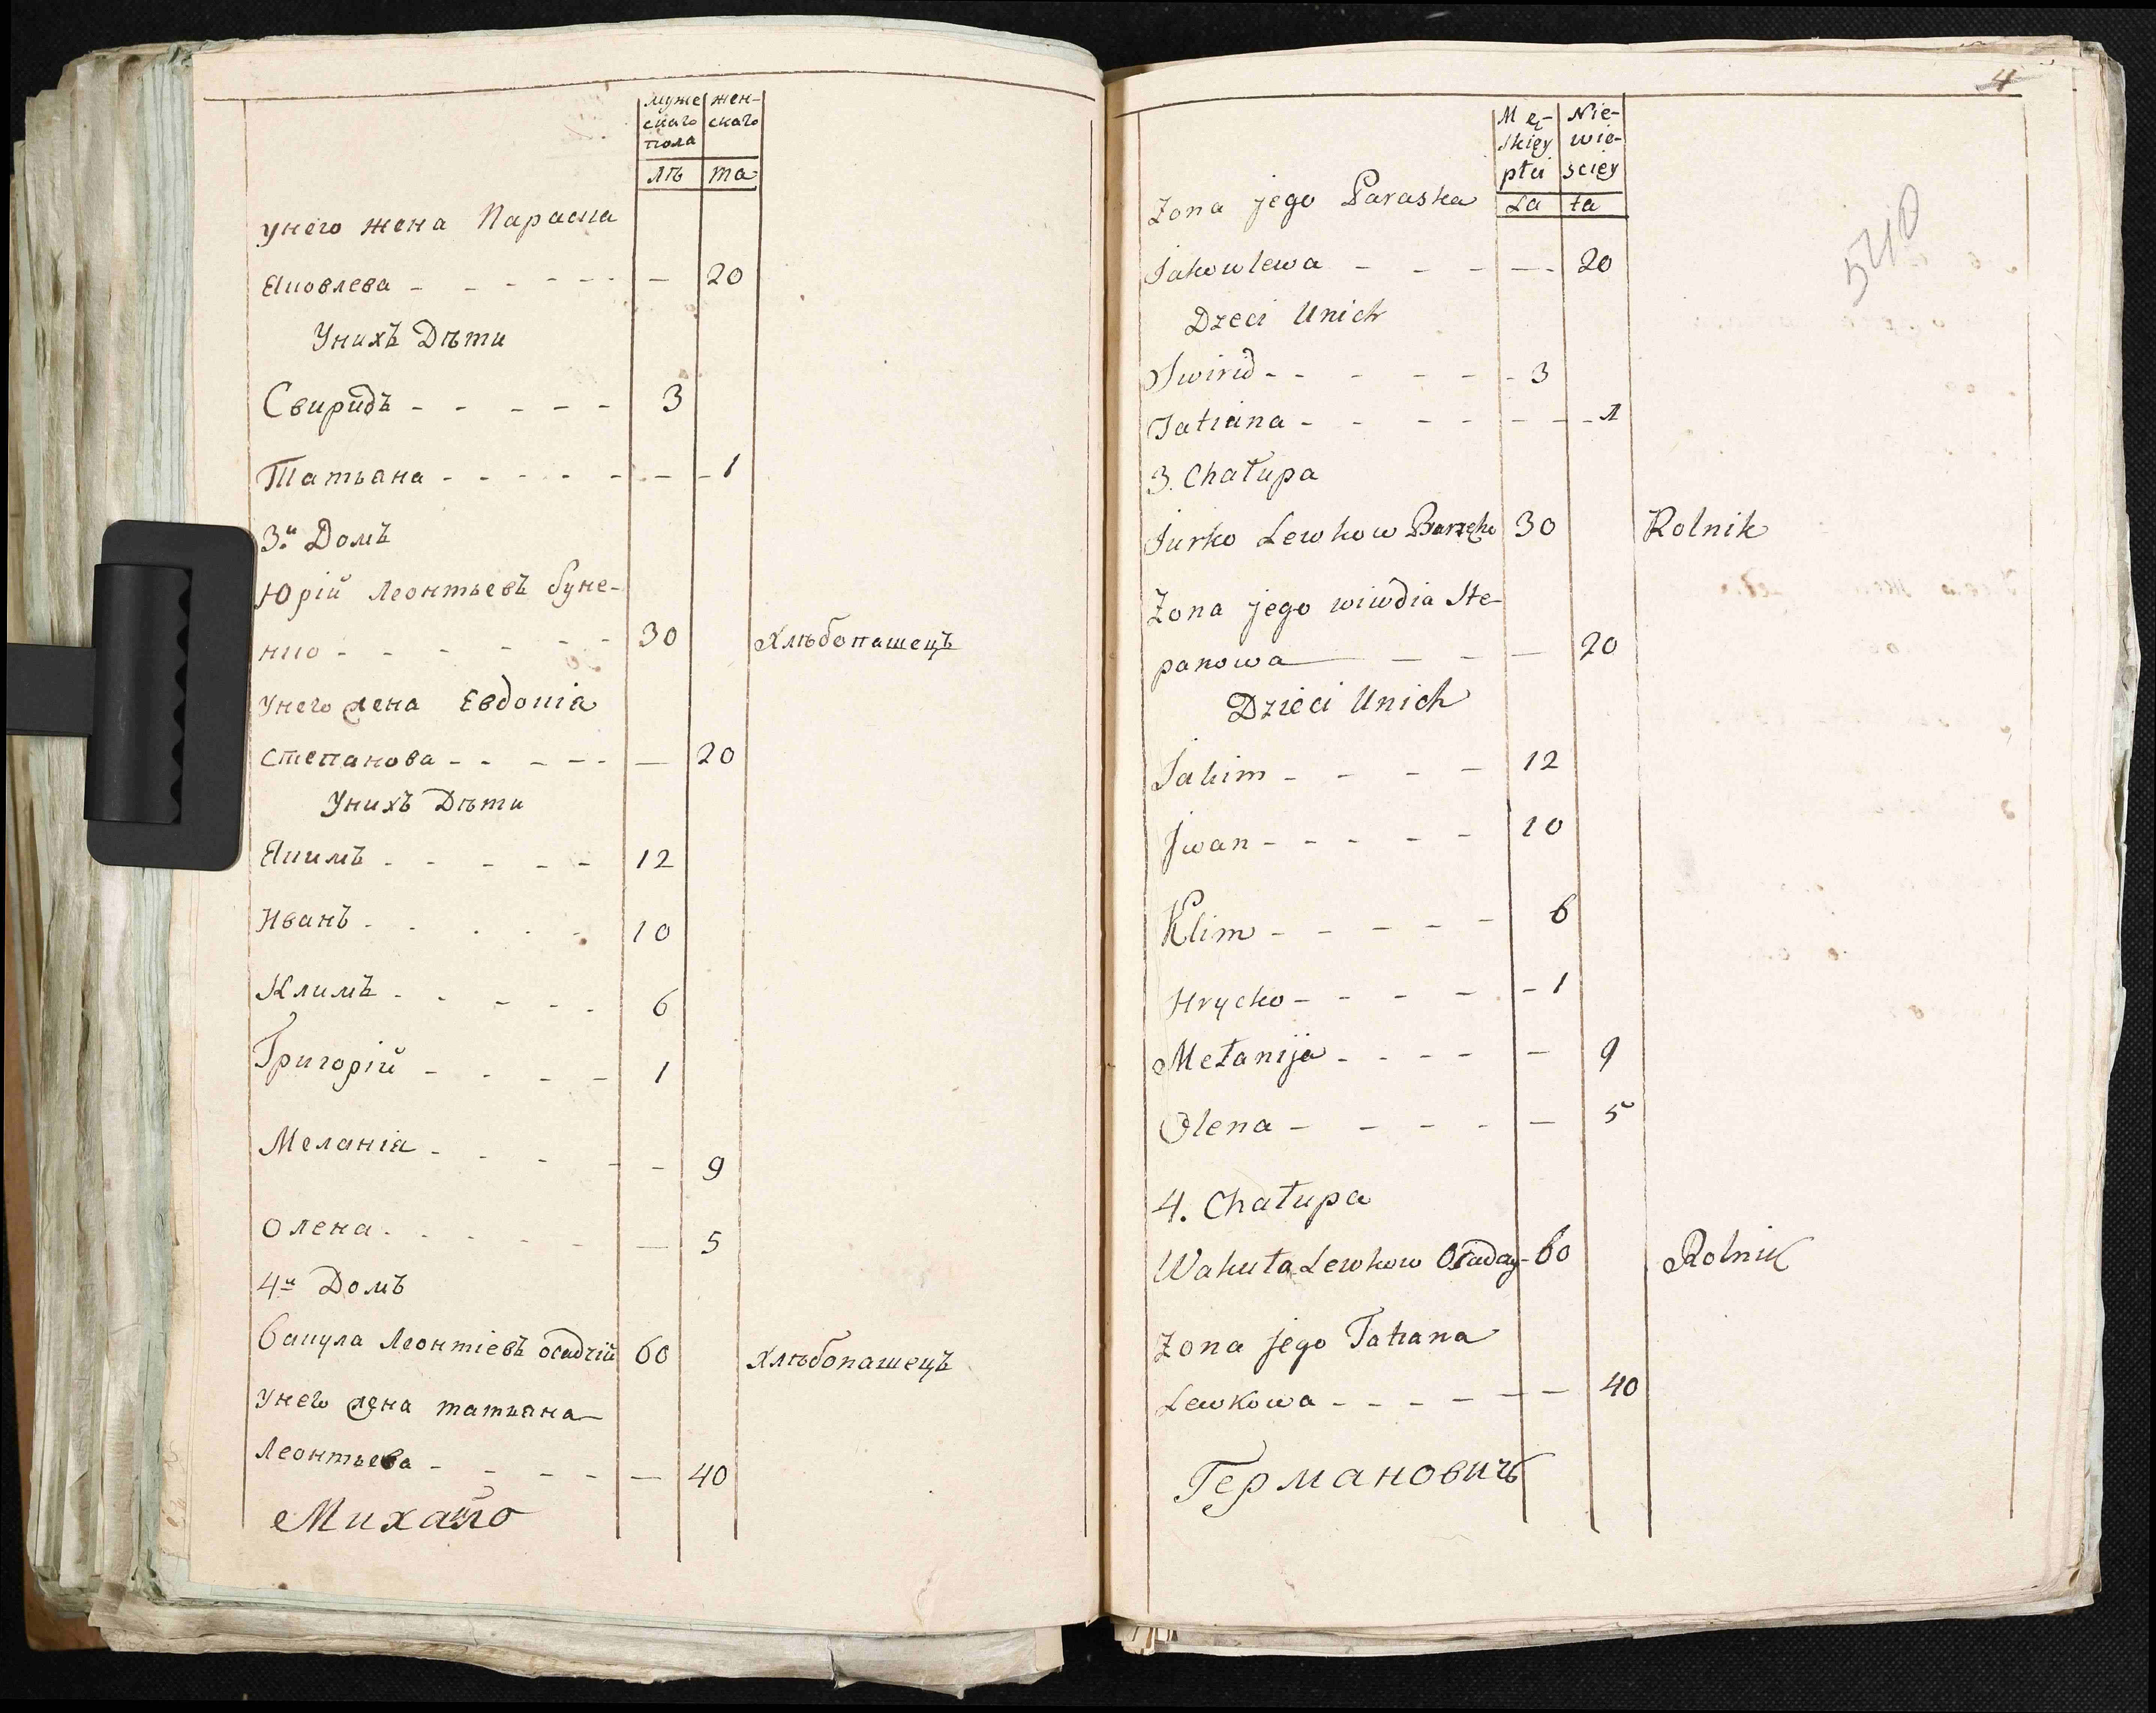 муже жен-
скаго скаго
пола
лѣ та
унего жена Параска
Яковлева - - - - - - — 20
Унихъ Дѣти
Свиридъ - - - - - 3
Татьяна - - - - - - - - 1
3й Домъ
Юрій Леонтьевъ буне-
нко - - - - - - 30 Хлѣбопашецъ
Унего жена Евдокія
Степанова - - - - - — 20
Унихъ Дѣти
Якимъ - - - - - 12
Иванъ - - - - - 10
Климъ - - - - - 6
Григорій - - - - 1
Меланія - - - - - 9
Олена - - - - - — 5
4й Домъ
Вакула Леонтіевъ осадчій 60 хлѣбопашецъ
Унего жена татьяна
Леонтьева - - - - - — 40
Михайло
4
Mę- Nie-
skiey wie-
płci sciey
La ta
5410
Zona jego Paraska
Jakowlewa - - - - - 20
Dzeci Unich
Swirid - - - - - - - 3
Tatiana - - - - - - - 1
3. Chałupa
Jurko Lewkow 30 Rolnik
Zona jego wiwdia Ste-
panowa — — - — 20
Dzieci Unich
Jakim - - - - 12
Jwan - - - - - 10
Klim - - - - - 6
Hrycko - - - - - 1
Mełanija - - - - — 9
Olena - - - - - — 5
4. Chałupa
Wakuła Lewkow Osadczy - 60 Rolnik
Zona jego Tatiana
Lewkowa - - - - - — 40
Германовичъ